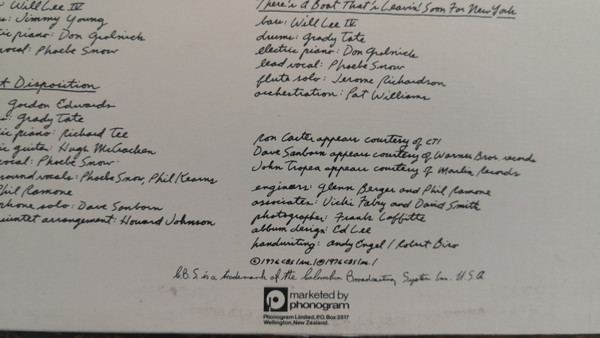 : Will Lee IV
: Jimmy Young
ric piano: Don Grolnick
vocal: Phoebe Snow
t Disposition
Gordon Edwards
: Grady Tate
ric piano: Richard Tee
ic guitar: Hugh McCracken
vocal: Phoebe Snow
round vocals: Phoebe Snow, Phil Kearns
Phil Ramone
phone solo: Dave Sanborn
uintet arrangement: Howard Johnson
There's A Boat That's Leavin' Soon For New York
bass: Will Lee IV
drums: Grady Tate
electric piano: Don Grolnick
lead vocal: Phoebe Snow
flute solo: Jerome Richardson
orchestration: Pat Williams
Ron Carter appears courtesy of CTI
Dave Sanborn appears courtesy of Warner Bros. records
John Tropea appears courtesy of Marlin Records
engineers: Glenn Berger and Phil Ramone
associates: Vicki Fabry and David Smith
photographer: Frank Laffitte
album design: Ed Lee
handwriting: Andy Engel / Robert Biro
©1976 CBS Inc./℗1976 CBS Inc./
C.B.S. is a trademark of the Columbia Broadcasting System Inc. U.S.A.
marketed by
phonogram
Phonogram Limited, P.O. Box 2517
Wellington, New Zealand.